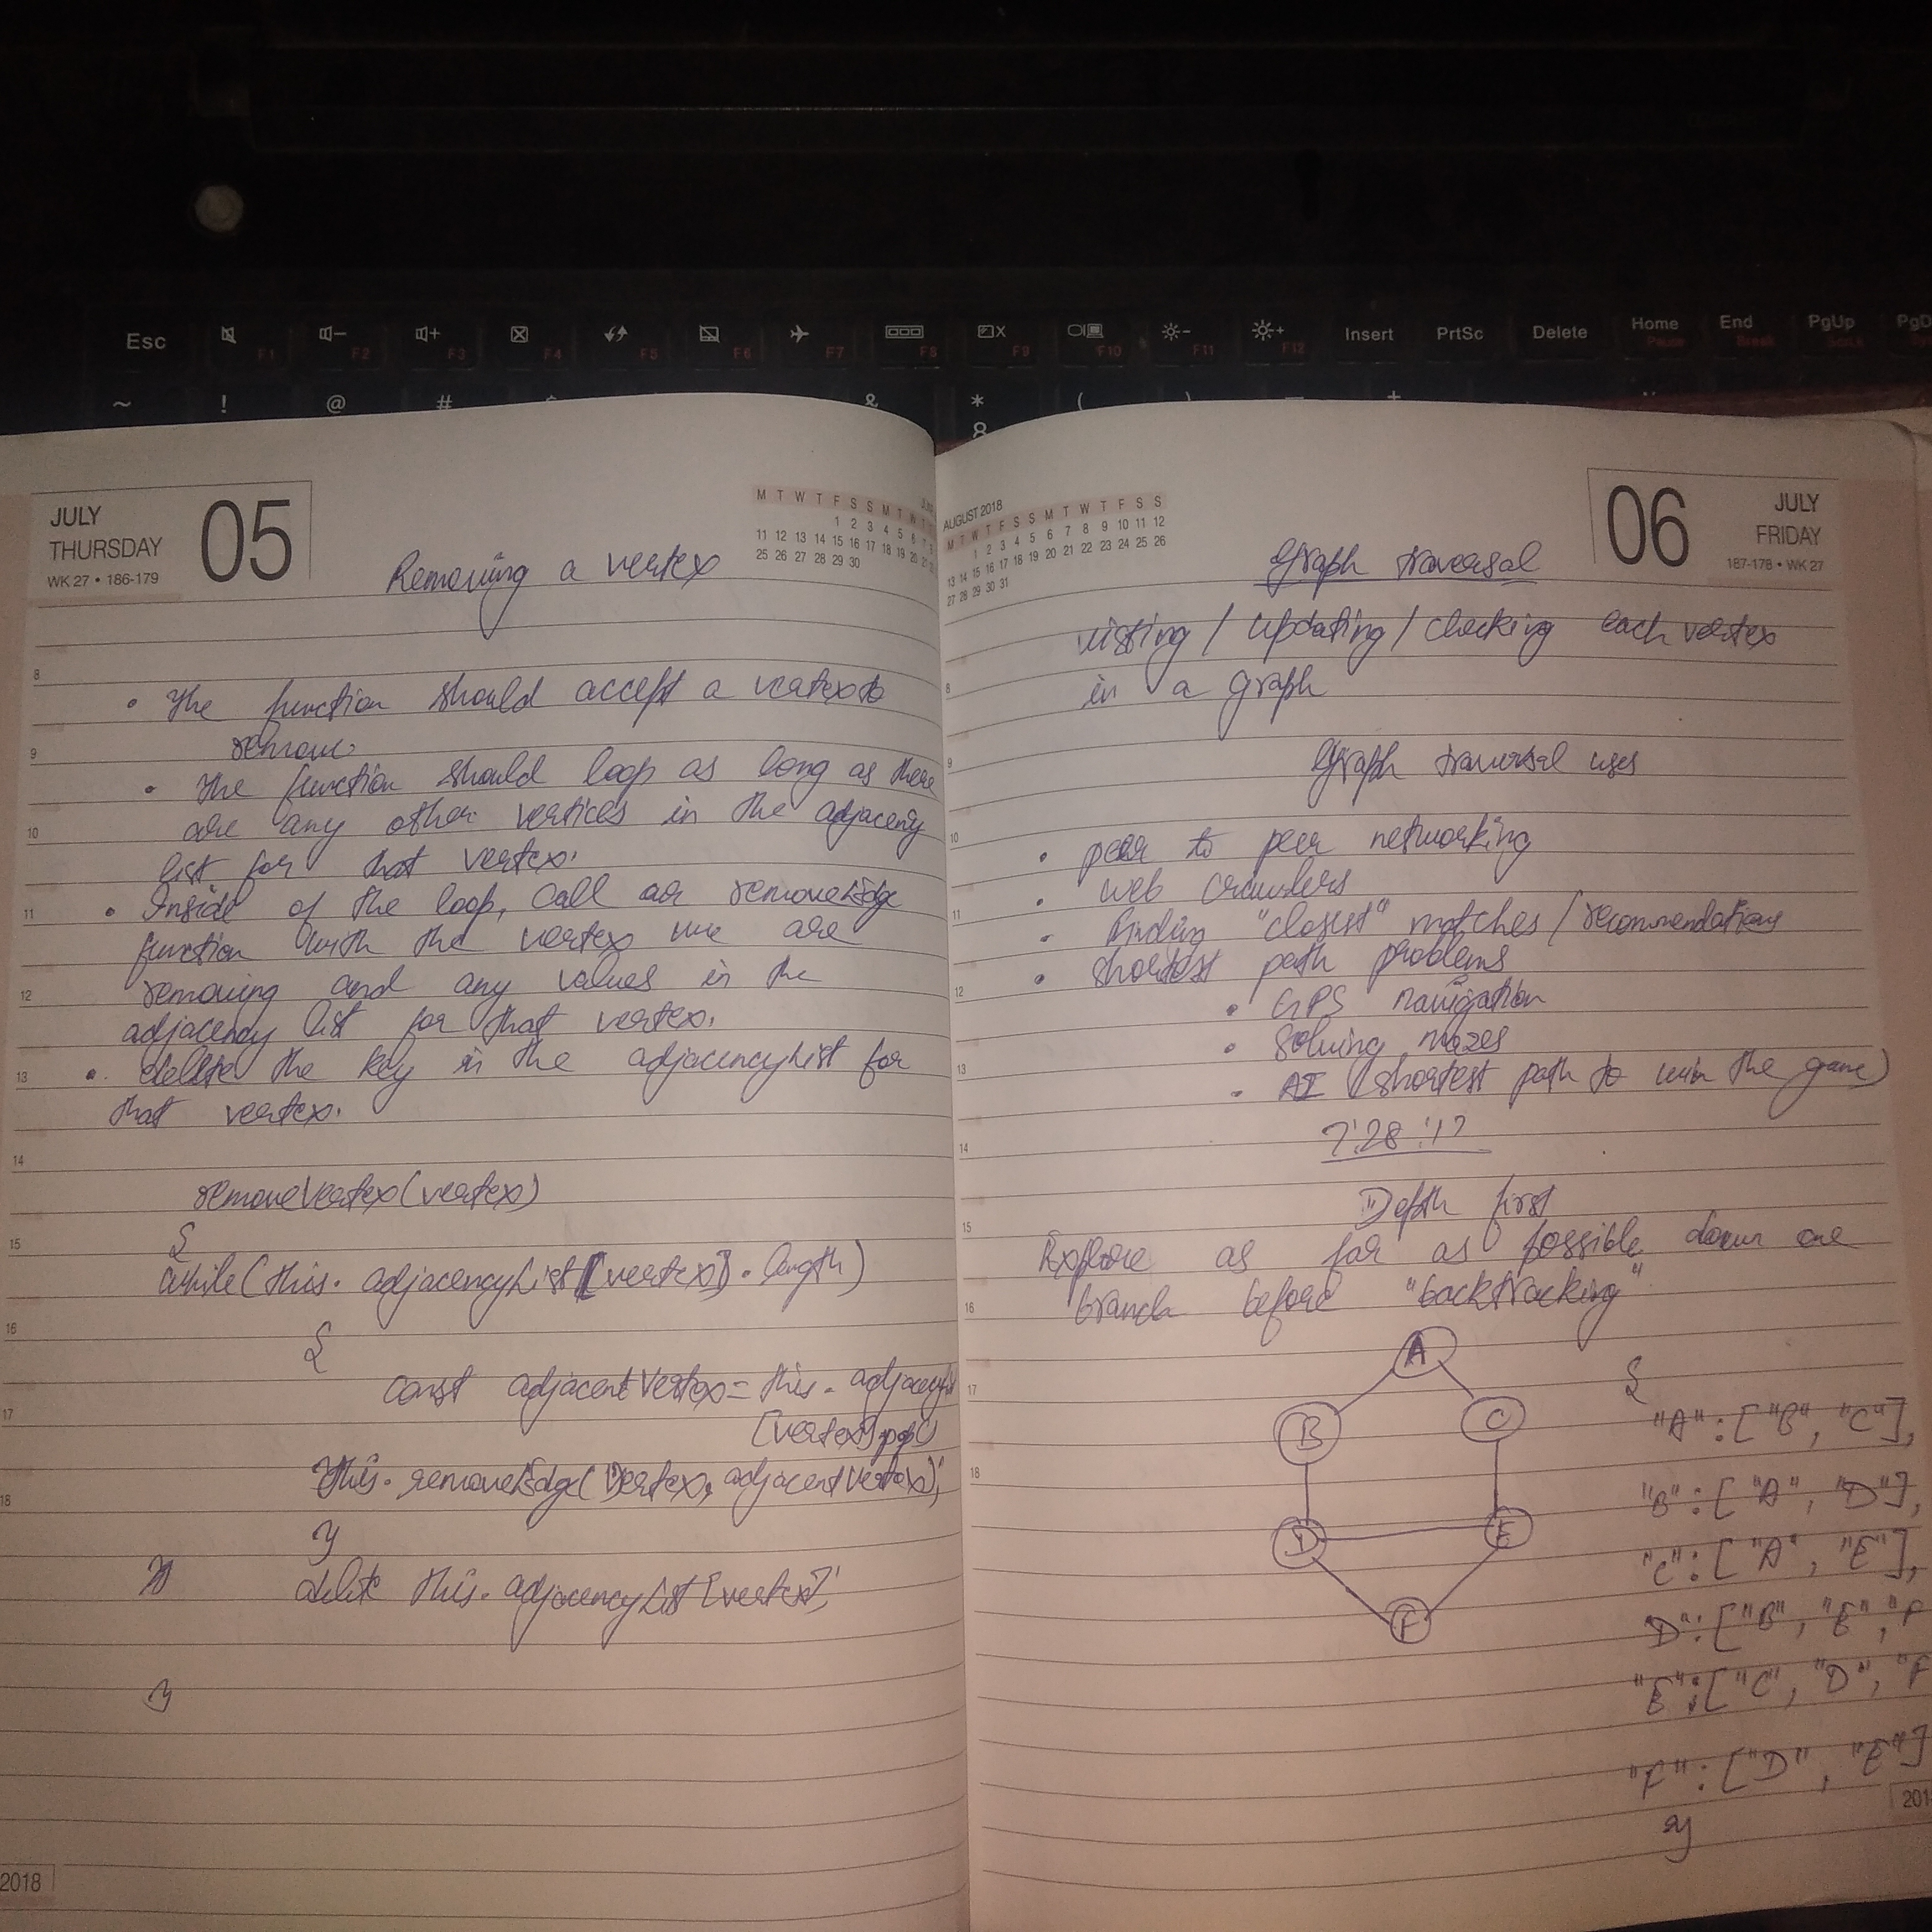 Esc
F1 F2 F3 F4 F5 F6 F7 F8 F9 F10 F11 F12
Insert PrtSc Delete Home End PgUp
Pause Break
~ ! @ # & * (
8
JULY
THURSDAY
WK 27 • 186-179
05
M T W T F S S M T W
1 2 3 4 5 6 7
11 12 13 14 15 16 17 18 19 20
25 26 27 28 29 30
Removing a vertex
8
• The function should accept a vertex to
remove.
9
• The function should loop as long as there
are any other vertices in the adjaceny
10
list for that vertex.
• Inside of the loop, call our removeEdge
11
function with the vertex we are
removing and any values in the
12
adjacency list for that vertex.
• delete the key in the adjacencyList for
13
that vertex.
14
removeVertex(vertex)
15
{
while(this.adjacencyList[vertex].length)
16
{
const adjacentVertex = this.adjacency
17
[vertex].pop()
this.removeEdge(Vertex, adjacentVertex);
18
}
delete this.adjacencyList[vertex];
}
2018
AUGUST 2018
M T W T F S S M T W T F S S
1 2 3 4 5 6 7 8 9 10 11 12
13 14 15 16 17 18 19 20 21 22 23 24 25 26
27 28 29 30 31
06
JULY
FRIDAY
187-178 • WK 27
Graph traversal
visting / updating / checking each vertex
8
in a graph
9
Graph traversal uses
10
• peer to peer networking
• web crawlers
11
• finding "closest" matches / recommendations
• shortest path problems
12
• GPS navigation
• Solving mazes
13
• AI (shortest path to win the game)
14
Depth first
15
Explore as far as possible down one
16
branch before "backtracking"
A
17
B C
18
D E
F
{
"A": ["B", "C"],
"B": ["A", "D"],
"C": ["A", "E"],
D": ["B", "E", "F
"E": ["C", "D", "F
"F": ["D", "E"]
}
201